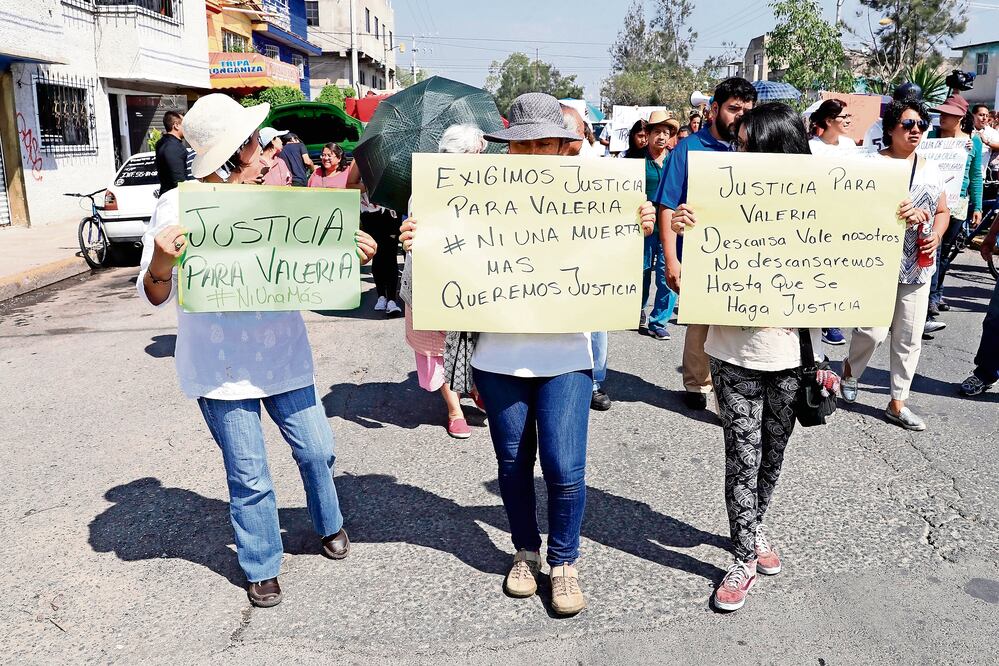 TRIPA
LONGANIZA
JUSTICIA
PARA VALERIA
#NiUnaMás
EXIGIMOS JUSTICIA
PARA VALERIA
# NI UNA MUERTA
MAS
QUEREMOS JUSTICIA
JUSTICIA PARA
VALERIA
Descansa Vale nosotros
No descansaremos
Hasta Que Se
Haga JUSTICIA